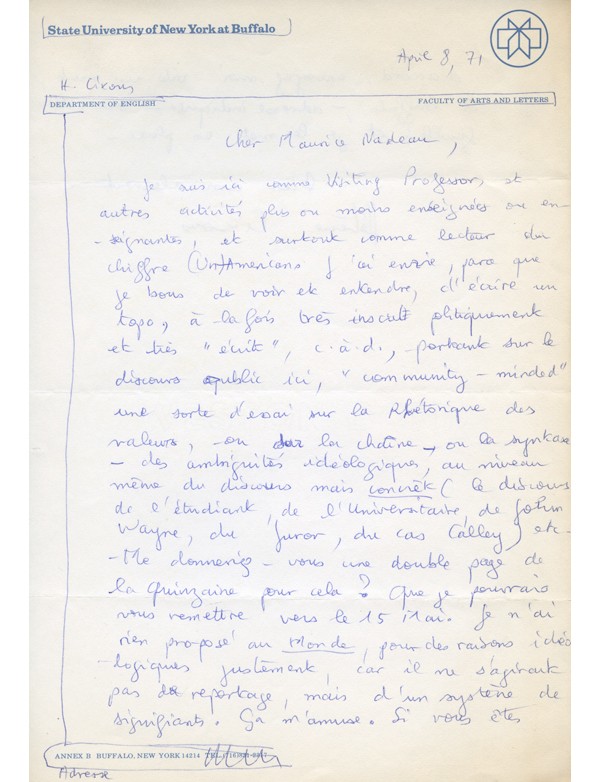 State University of New York at Buffalo
April 8, 71
H. Cixous
DEPARTMENT OF ENGLISH
FACULTY OF ARTS AND LETTERS
Cher Maurice Nadeau,
Je suis ici comme Visiting Professor, et
autres activités plus ou moins enseignées ou en-
-seignantes, et surtout comme lecteur du
chiffre (Un)Americans J'ai envie, parce que
je bous de voir et entendre, d'écrire un
topo, à la fois très inscrit politiquement
et très "écrit", c.à.d., portant sur le
discours public ici, "community-minded"
une sorte d'essai sur la Rhétorique des
valeurs, -ou sur la chaîne, ou la syntaxe
- des ambiguités idéologiques, au niveau
même du discours mais concrêt (le discours
de l'étudiant, de l'Universitaire, de John
Wayne, du Juror, du cas Calley) etc-
-Me donneriez-vous une double page de
la Quinzaine pour cela? Que je pourrais
vous remettre vers le 15 Mai. Je n'ai
rien proposé au Monde, pour des raisons idéo
-logiques justement, car il ne s'agirait
pas de reportage, mais d'un système de
signifiants. Ça m'amuse. Si vous êtes
ANNEX B BUFFALO, NEW YORK 14214 TEL.
Adresse